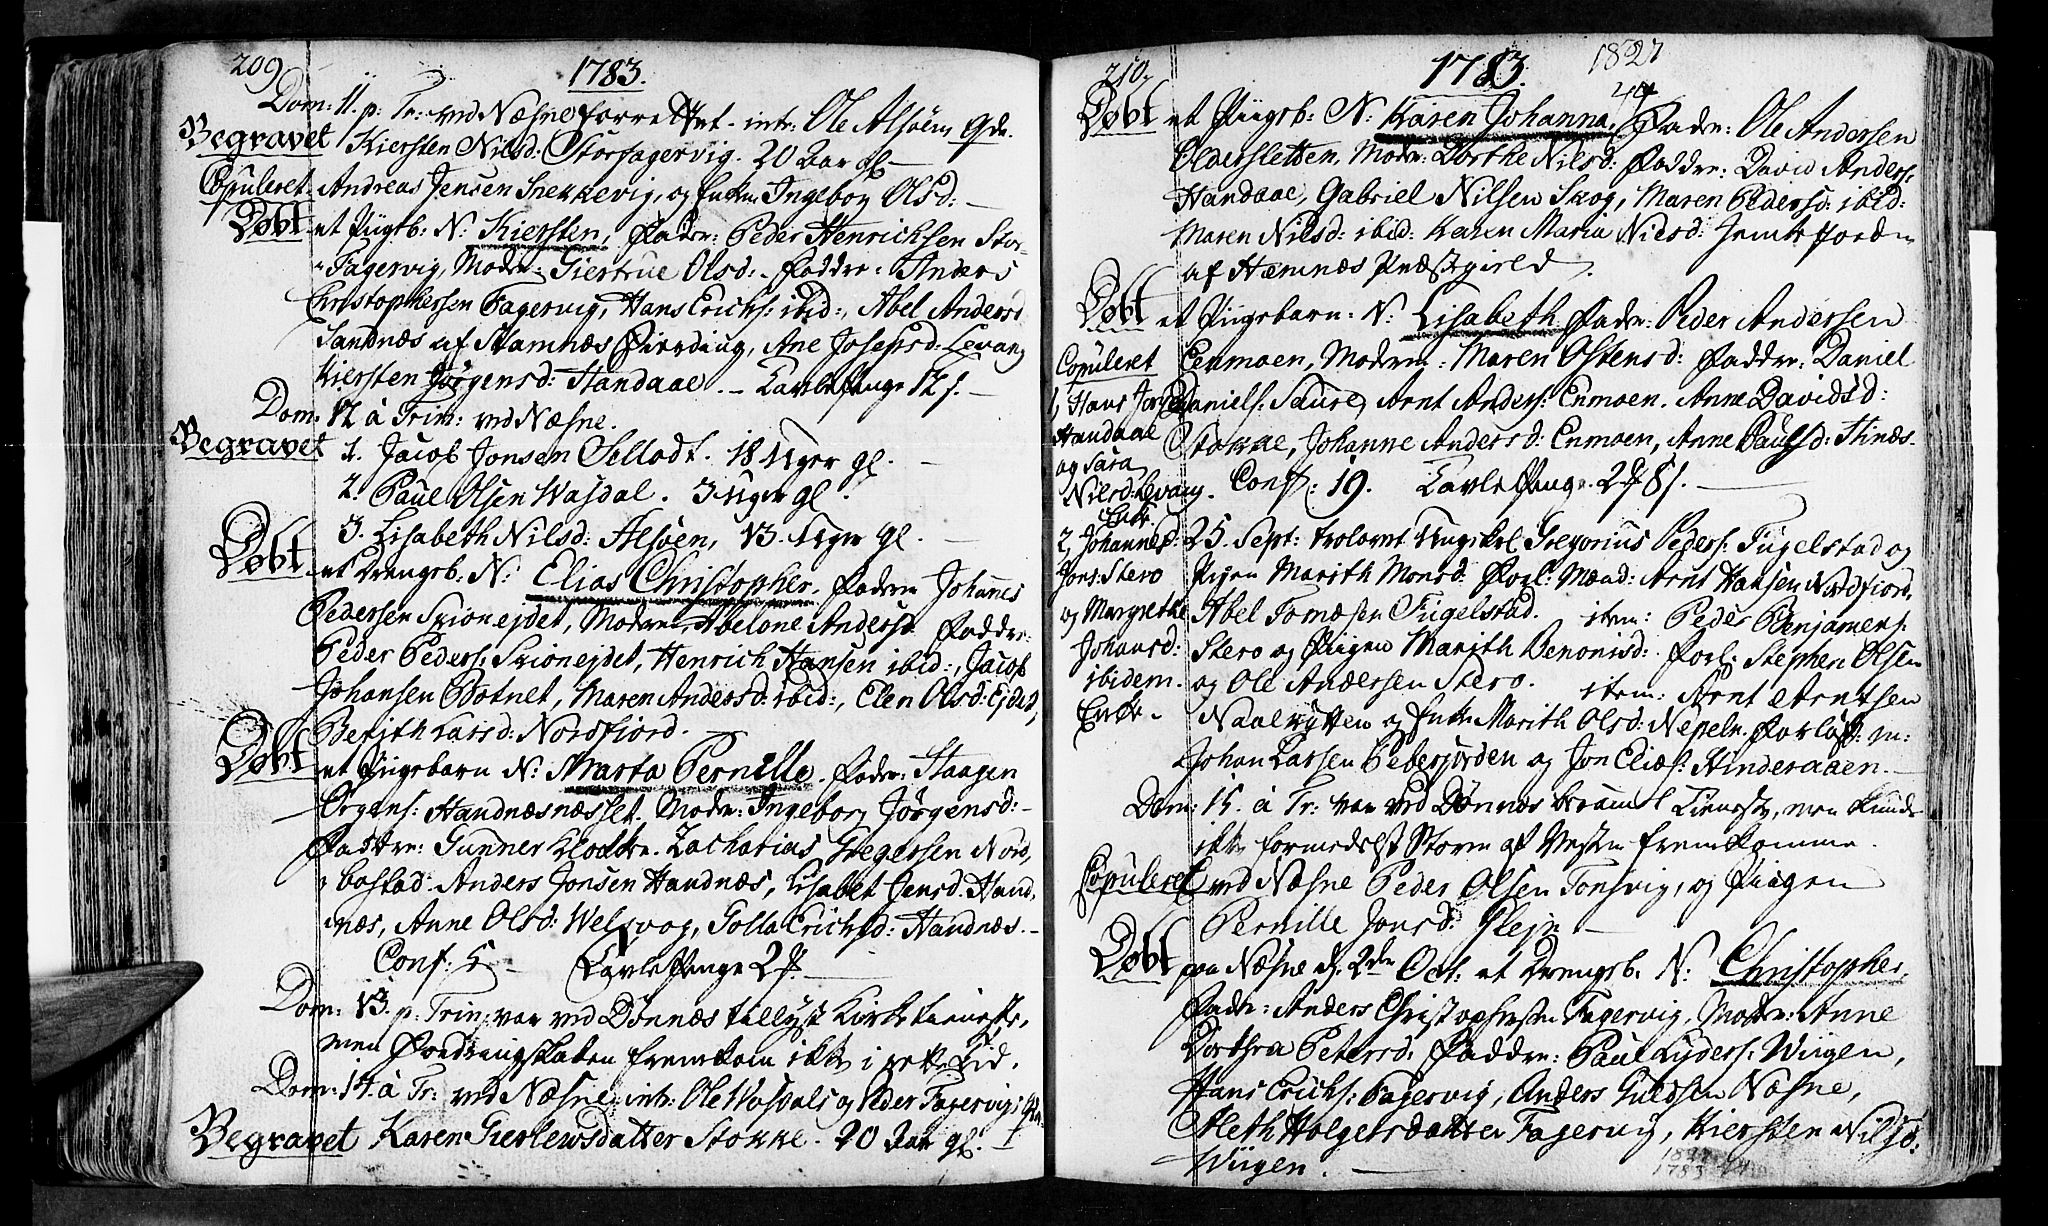 209
1783.
Dom: 11. p: Tr: ved Næsne forrettet - intr: Ole Alsøns Qde.
Begravet Kiersten Nilsd: Storfagervig. 20 Aar gl. —
Copuleret. Andreas Jensen Snekkevig, og Enken Ingebor Olsd: —
Døbt et Piigeb: N: Kiersten, Fader: Peder Henrichsen Stor-
Fagervig, Moder: Giertrue Olsd: Faddre: Anders
Christophersen Fagervig, Hans Erichs: ibid:, Abel Andersd
Sandnæs af Stamnæs Fierding, Ane Josephsd: Levang
Kiersten Jørgensd: Handaae. — Tavlepenge 12 s. —
Dom: 12 à Trin: ved Næsne.
Begravet 1. Jacob Jonsen Sellodt. 18 Uger gl. —
2. Paul Olsen Wasdal. 3 Uger gl.
3. Lisabeth Nilsd: Alsøen, 13. Uger gl. —
Døbt et Drengeb: N: Elias Christopher. Faderen Johanes
Pedersen Skionejdet, Moderen Abelone Andersd Faddre:
Peder Peders: Skionejdet, Henrich Hansen ibid:, Jacob
Johansen Botnet, Maren Andersd: ibid:, Elen Olsd: Ejdet,
Berith Larsd: Norsfiord.
Døbt et Pigebarn N: Marta Pernille. Fader: Staagen
Ørgens: Handnæsnæsset. Moder: Ingebor Jørgensd: —
Faddre: Gunner Klokker. Zacharias Gregersen Nord,
bostad. Anders Jonsen Handnæs, Lisabet Jensd. Hand,
næs, Anne Olsd: Welsvog, Golla Erichsd: Handnæs. —
Conf: 5 — Tavlepenge 2 —
Dom: 13. p: Trin: var ved Dønnæs tillyst Kirketieneste,
men Fordringskaben fremkom ikke i rette Tid.
Dom: 14. à Tr: ved Næsne: intr: Ole Wasdals og Peder Fagervigs
Begravet Karen Gierlewsdatter Stokke. 20 Aar gl. —
210,
1783.
1827
44
Døbt et Piigeb: N: Karen Johanna, Fader: Ole Andersen
Oldersletten, Moder: Dorthe Nilsd: Faddre: David Anders:
Handaae, Gabriel Nilsen Skog, Maren Pedersd: ibid:
Maren Nilsd: ibid: Karen Maria Nilsd:
af Hemnæs Præstegield.
Døbt et Pigebarn: N: Lisabeth Fader: Peder Andersen
Enmoen, Moderen: Maren Ostensd: Faddre: Daniel
Daniels: Saure, Arnt Anders: Enmoen. Anne Davidsd:
Stokke, Johanne Andersd: Enmoen, Anne Paulsd: Stinæs.
Conf: 19. Tavlepenge. 2 8 s. —
Copuleret
1, Hans Jonsen
Handaae
og Sara
Nilsd: Levang.
Enke
2, Johannes
Jons: Stero
og Margrethe
Johansd:
ibidem.
Enke.
d: 25. Sept: trolovet Ungekrl Gregorius Peders: Fugelstad og
Pigen Marith Monsd. Forl: Mænd: Arnt Hansen Nordfiord,
Abel Tomæsen Fugelstad. item: Peder Benjamens:
Stero og Piigen Marith Benonisd: Forl: Stephen Olsen
og Ole Andersen Stero. item: Arnt Arntsen
Naalrytten og Enken Marith Olsd: Nepeln. Forlov: m:
Johan Larsen Bebersjorden og Jon Elias: Hinderaaen. —
Dom: 15. à Tr: var ved Dønnæs beramt Tieneste, men kunde
ikke formedelst Storm af Vesten fremkomme.
Copuleret ved Næsne Peder Olsen Tonsvig, og Piigen
Pernille Jonsd: Glejn —
Døbt paa Næsne d. 2den Oct. et Drengeb. N: Christopher,
Fader: Anders Christophersen Fagervig, Moder: Anne
Dorthea Petersd: Faddre: Paul Lyders: Wiigen,
Hans Erichs: Fagervig, Anders Guldsen Næsne,
Aleth Holgersdatter Fagervig, Kiersten Nilsd:
Wiigen. —
1783